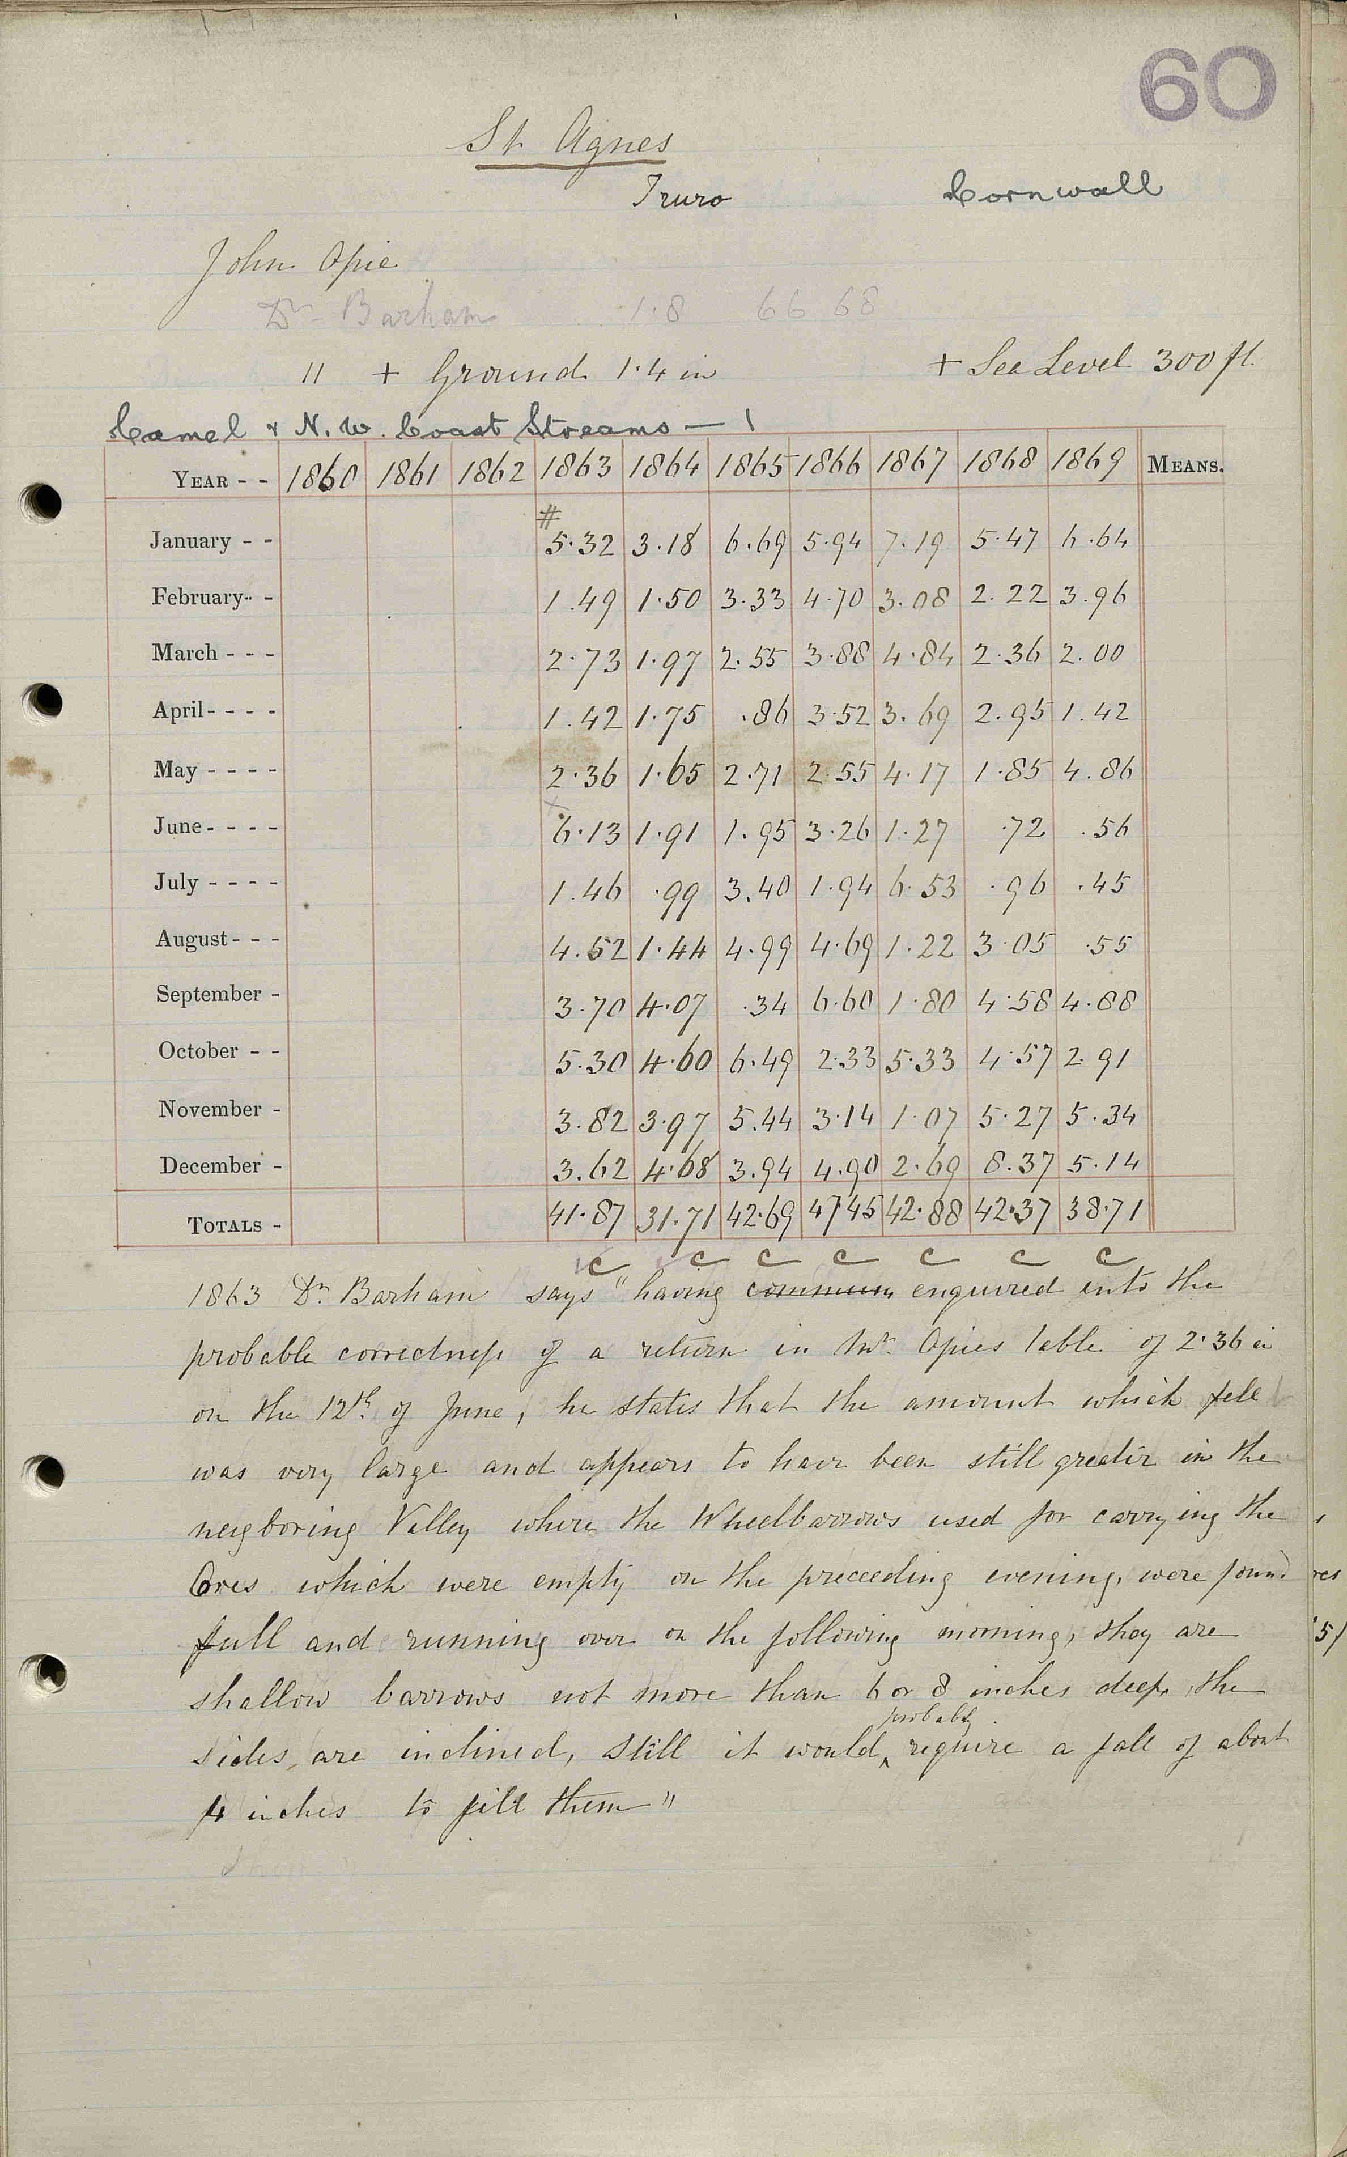 60
St Agnes
Truro Cornwall
John Opie
Dr Barham 1.8 66 68
" + Ground 1.4 in + Sea Level 300 ft.
Camel & N.W. Coast Streams — 1
YEAR - - 1860 1861 1862 1863 1864 1865 1866 1867 1868 1869 MEANS.
#
January - - 5.32 3.18 6.69 5.94 7.19 5.47 6.64
February - - 1.49 1.50 3.33 4.70 3.08 2.22 3.96
March - - - 2.73 1.97 2.55 3.88 4.84 2.36 2.00
April - - - - 1.42 1.75 .86 3.52 3.69 2.95 1.42
May - - - - 2.36 1.65 2.71 2.55 4.17 1.85 4.86
x
June - - - - 6.13 1.91 1.95 3.26 1.27 .72 .56
July - - - - 1.46 .99 3.40 1.94 6.53 .96 .45
August - - - 4.52 1.44 4.99 4.69 1.22 3.05 .55
September - 3.70 4.07 .34 6.60 1.80 4.58 4.88
October - - 5.30 4.60 6.49 2.33 5.33 4.57 2.91
November - 3.82 3.97 5.44 3.14 1.07 5.27 5.34
December - 3.62 4.68 3.94 4.90 2.69 8.37 5.14
TOTALS - 41.87 31.71 42.69 47.45 42.88 42.37 38.71
C C C C C C C
1863 Dr. Barham says "having enquired into the
probable correctness of a return in Mr. Opies table of 2.36 in
on the 12th of June, he states that the amount which fell
was very large and appears to have been still greater in the
neigboring Valley where the Wheelbarrows used for carrying the
Ores which were empty on the preceeding evening, were found
full and running over on the following morning, they are
shallow barrows not more than 6 or 8 inches deep, the
probably
sides, are inclined, still it would ^ require a fall of about
4 inches to fill them"